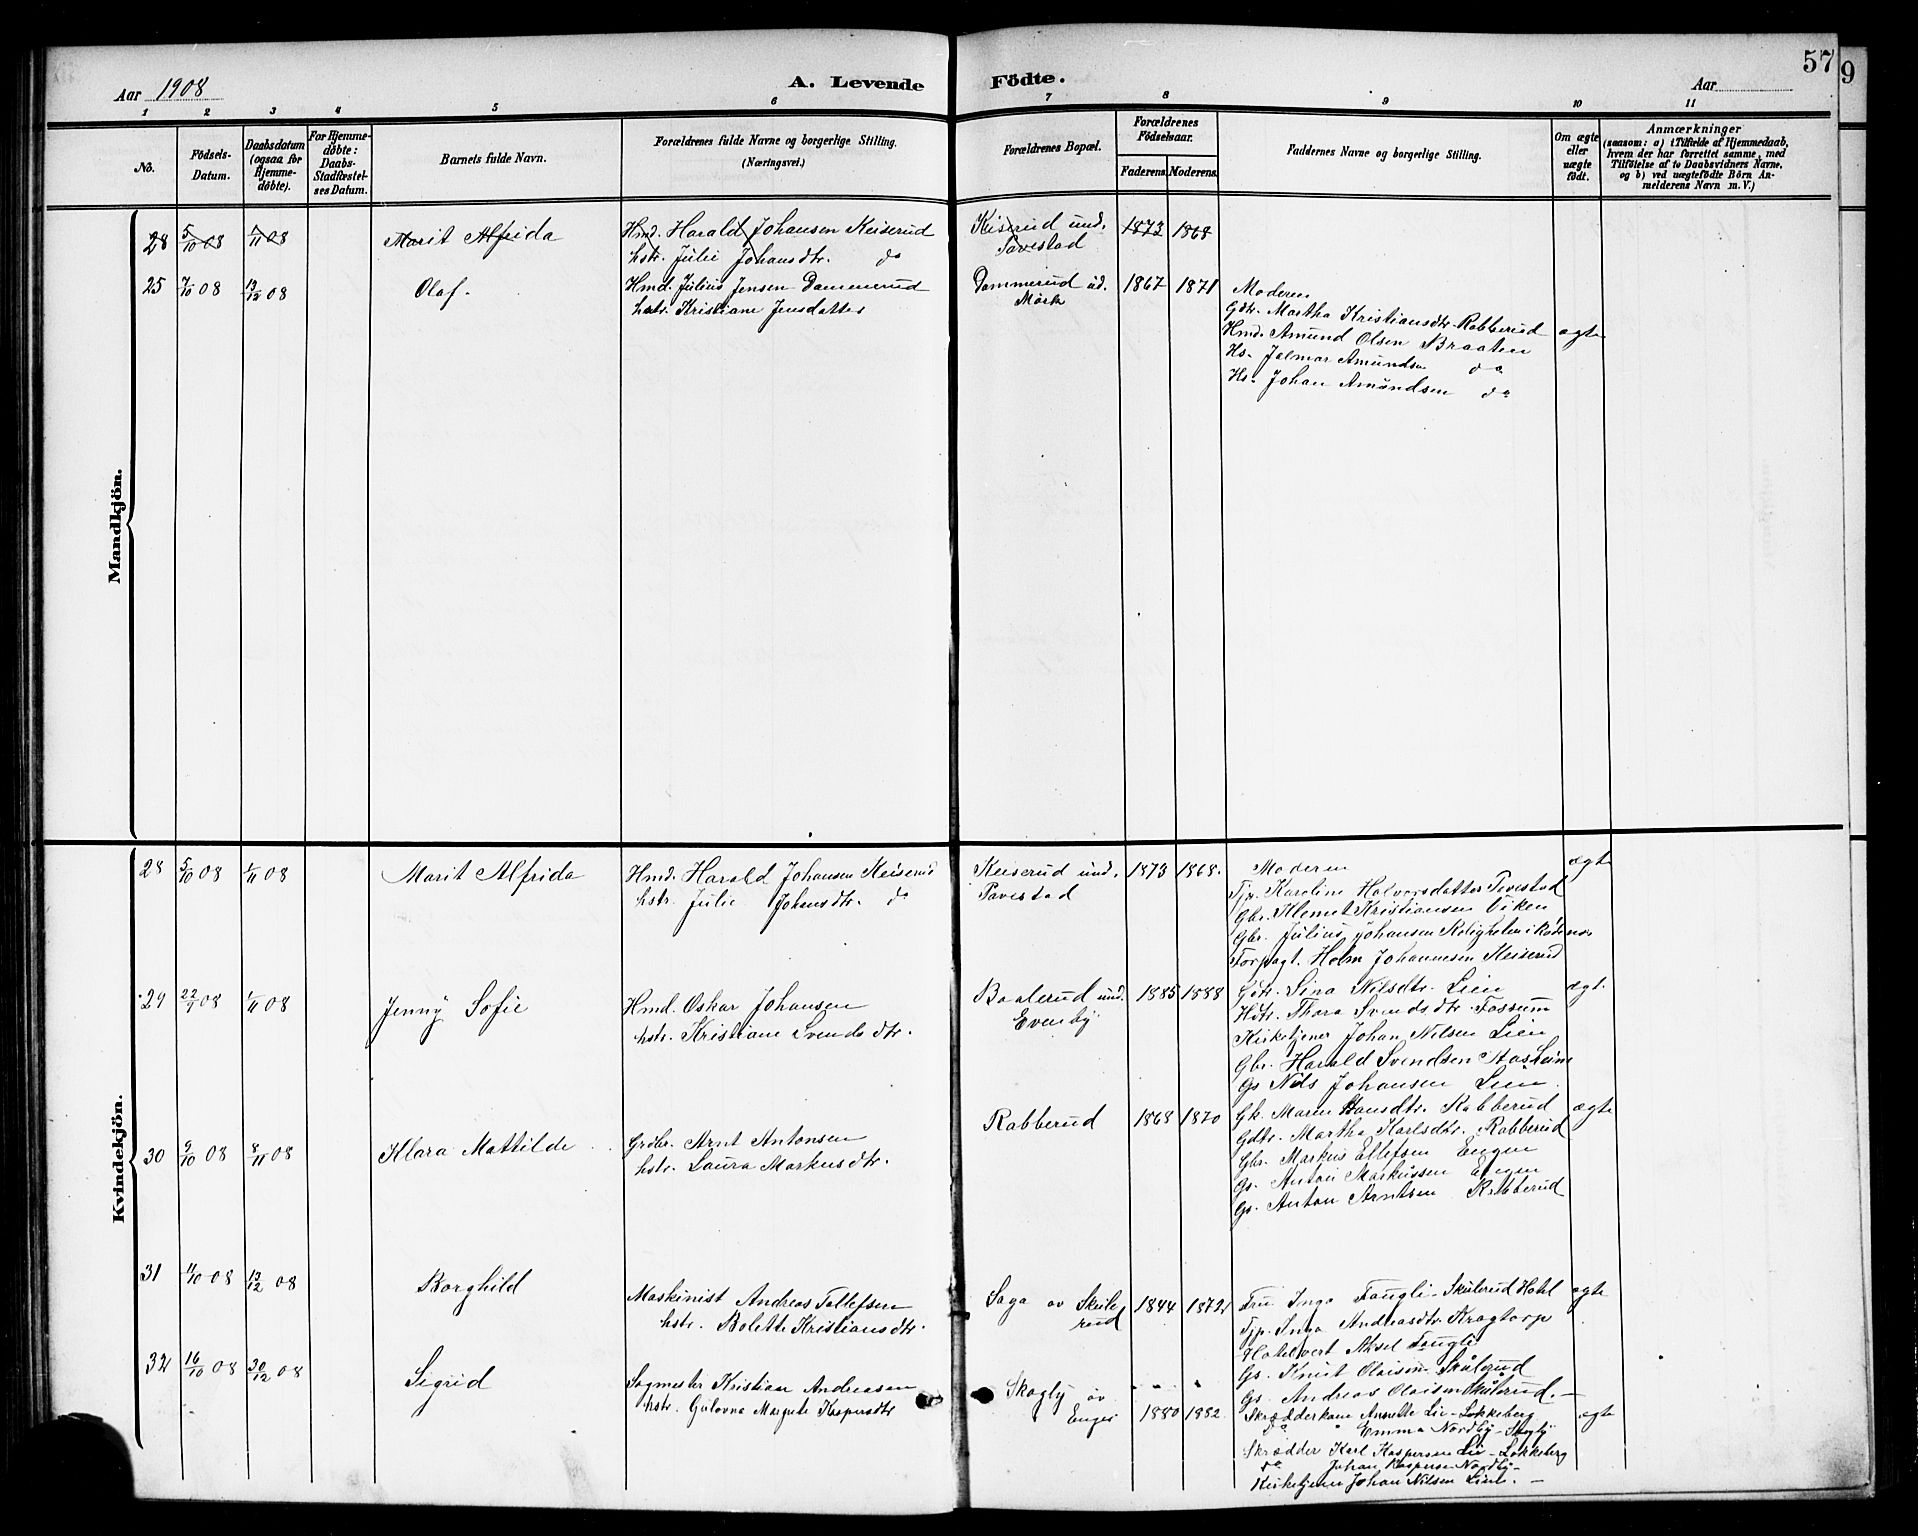 57
9
Aar 1908
A. Levende Födte.
Aar
1 2 3 4 5 6 7 8 9 10 11
No.
Födsels-Datum.
Daabsdatum (ogsaa for Hjemme-döbte).
For Hjemme-döbte: Daabs-Stadfæstel-ses Datum.
Barnets fulde Navn.
Forældrenes fulde Navne og borgerlige Stilling.
(Næringsvei.)
Forældrenes Bopæl.
Forældrenes Födselsaar.
Faderens. Moderens.
Faddernes Navne og borgerlige Stilling.
Om ægte eller uægte födt.
Anmærkninger
(saasom: a) i Tilfælde af Hjemmedaab, hvem der har forrettet samme, med Tilföielse af to Daabsvidners Navne, og b) ved uægtefödte Börn Anmelderens Navn m. V.)
Mandkjön.
28 5/10 08 1/11 08 Marit Alfrida Hmd. Harald Johansen Keiserud Keiserud und. 1873 1868
hstr. Julie Johansdtr. do Tavestad
25 7/10 08 13/12 08 Olaf. Hmd. Julius Jensen Dammerud Dammerud ud. 1867 1871 Moderen
hstr. Kristiane Jensdatter Mörk Gdtr. Martha Kristiansdtr. Rabberud
Hmd. Amund Olsen Braaten ægte
Hs. Jalmar Amundsen do
Hs. Johan Amundsen do
Kvindekjön.
28 5/10 08 1/11 08 Marit Alfrida Hmd. Harald Johansen Keiserud Keiserud und. 1873 1868. Moderen ægte
hstr. Julie Johansdtr. do Tavestad Tjp. Karoline Halvorsdatter Tevestad
Gbr. Klemet Kristiansen Viken
Gbr. Julius Johansen Roligheten i Rödenes
Forpagt. Holm Johannesen Keiserud
29 22/9 08 1/11 08 Jenny Sofie Hmd. Oskar Johansen Baalerud und. 1885 1888 Gdtr. Lina Nilsdtr. Lien ægt.
hstr. Kristiane Svendsdtr. Evenby Hdtr. Thora Svendsdtr. Fossum
Kirketjener Johan Nilsen Lien
Gbr. Harald Svendsen
Gs Nils Johansen Lien
30 9/10 08 8/11 08 Klara Mathilde Grdbr. Arnt Antonsen Rabberud 1868 1870 Gk. Maren Hansdtr. Rabberud ægte
hstr. Laura Markusdtr. Gdtr. Martha Karlsdtr. Rabberud
Gbr. Markus Ellefsen Engen
Gs. Anton Markussen Engen
Gs. Anton Arntsen Rabberud
31 11/10 08 13/12 08 Borghild Maskinist Andreas Tollefsen Saga av Skule- 1844 1872 Fru Inga Fougli - Skulerud Hotel ægte
hstr. Bolette Kristiansdtr. rud Tjp. Inga Andreasdtr. Kragtorp
Hotelvert Aksel Fougli
Gs. Knut Olaisen Skulerud
Gs. Andreas Olaisen Skulerud.
32 16/10 08 30/12 08 Sigrid Sagmester Kristian Andreasen Skogly av
hstr. Gulovna Margrete Kaspersdtr Enger 1880 1882 Skrædderkone Annette Lie - Lokkeberg ægte
do Emma Nordby - Skogly
Skrædder Karl Kaspersen Lie - Lokkeberg
do Johan Kaspersen Nordby -
Kirketjener Johan Nilsen Lien. -